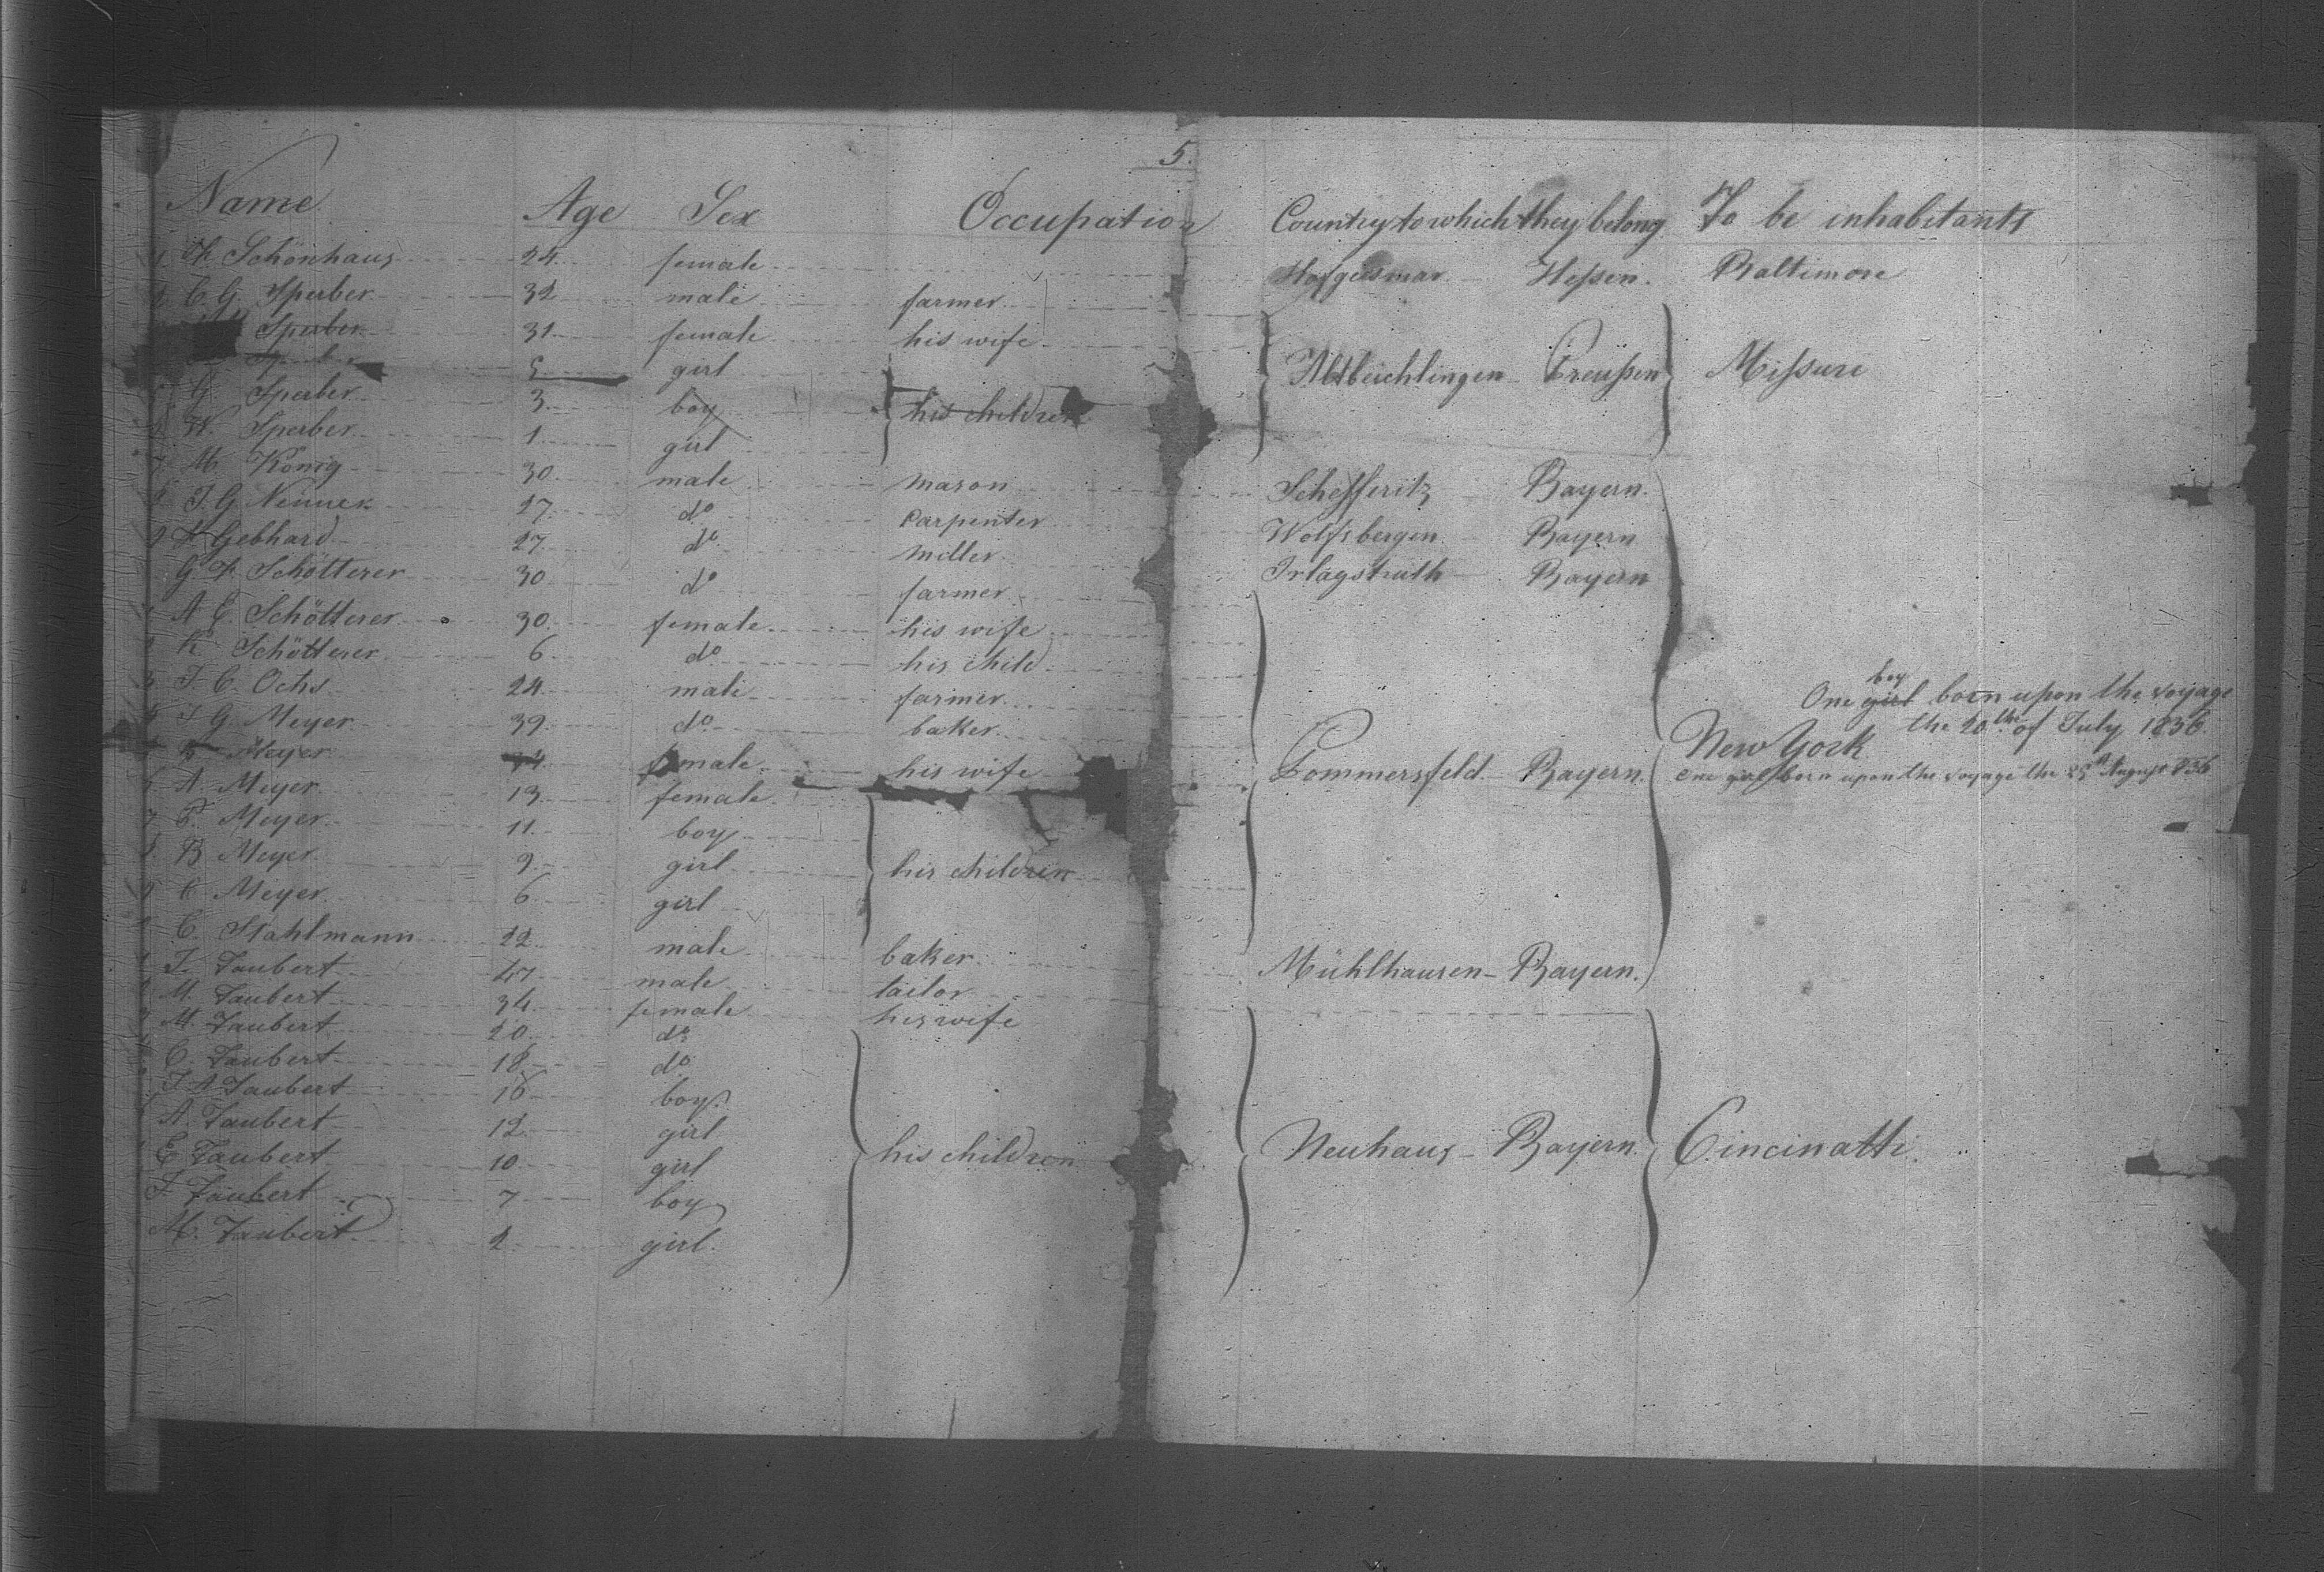 5.
Name Age Sex Occupation Country to which they belong To be inhabitants
1 Th Schönhaus 24 female Hofgeismar Heſsen. Baltimore
2 C. G. Sperber 32 male farmer
Sperber 31 female his wife
Sperber 5 girl
G Sperber 3 boy his children Altbeichlingen Preuſsen Miſsuri
W. Sperber 1 girl
7 M König 30 male mason Scheſferitz Bayern.
8 J. G. 27 do carpenter Wolfsbergen Bayern
9 Gebhard 27 do miller Bayern
G F. Schötterer 30 do farmer
A E. Schötterer 30 female his wife
K Schötterer 6 do his child
3 J. C. Ochs 24 male farmer
J G. Meyer 39 do baker
Meyer 34 female his wife Pommersfeld Bayern. New York
boy
One girl born upon the voyage
the 20th of July 1836
One girl born upon the voyage the August 836
A. Meyer 13 female
7 Meyer 11 boy
B Meyer 9 girl his children
C Meyer 6 girl
C. Stahlmann 22 male baker Mühlhausen Bayern.
J. Taubert 47 male tailor
M. Taubert 34 female his wife
M. Taubert 20 do
C. Taubert 18 do
J A Taubert 16 boy
A. Taubert 12 girl
E Taubert 10 girl his children Neuhaus Bayern. Cincinatti.
J. Taubert 7 boy
M. Taubert 2 girl.